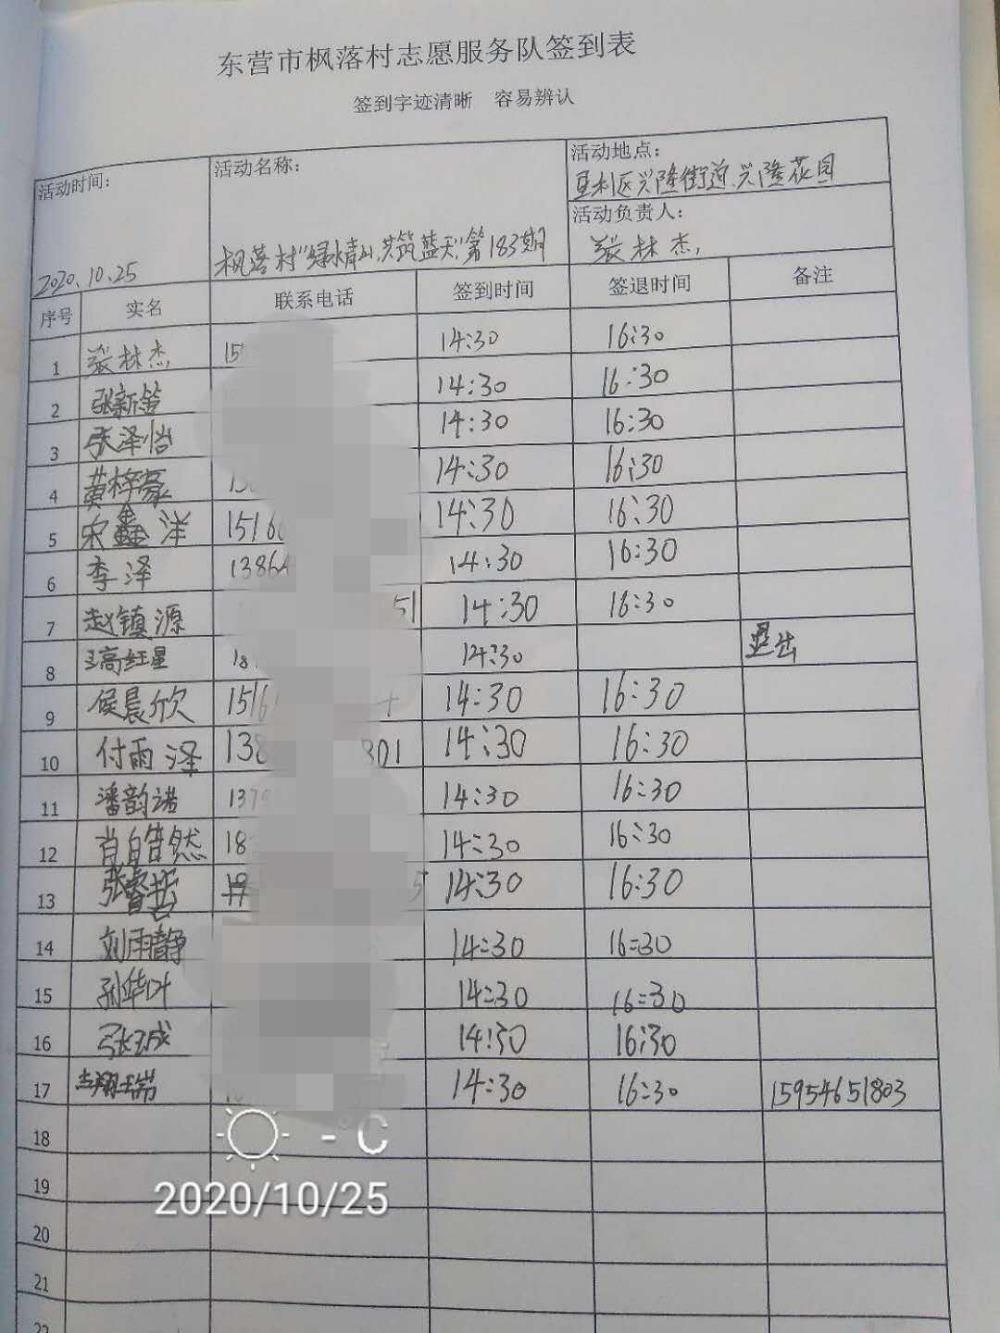 东营市枫落村志愿服务队签到表
签到字迹清晰 容易辨认
活动时间: 2020.10.25
活动名称: 枫落村"绿水青山,共筑蓝天"第183期
活动地点: 垦利区兴隆街道兴隆花园
活动负责人: 张林杰
序号 实名 联系电话 签到时间 签退时间 备注
1 张林杰 15 14:30 16:30
2 张新 14:30 16:30
3 张泽怡 14:30 16:30
4 黄梓豪 14:30 16:30
5 宋鑫洋 1516 14:30 16:30
6 李泽 1386 14:30 16:30
7 赵镇源 51 14:30 16:30
8 高红星 18 14:30 退出
9 侯晨欣 1516 14:30 16:30
10 付雨泽 138 801 14:30 16:30
11 潘韵诺 137 14:30 16:30
12 肖皓然 18 14:30 16:30
13 张睿哲 14:30 16:30
14 刘雨静 14:30 16:30
15 孙华叶 14:30 16:30
16 张珹 14:30 16:30
17 14:30 16:30 15954651803
18
- °C
19
2020/10/25
20
21
22